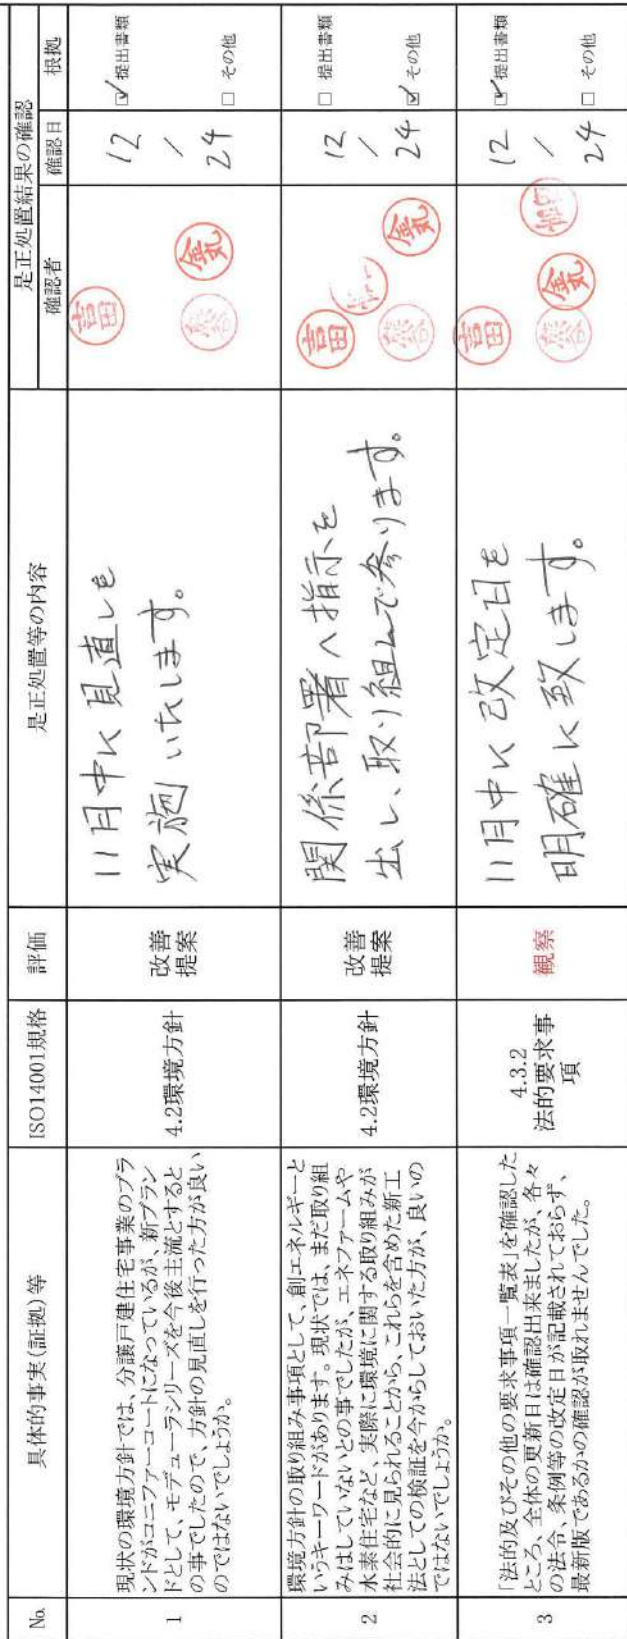 No.
具体的事実(証拠)等
ISO14001規格
評価
是正処置等の内容
是正処置結果の確認
確認者
確認日
根拠
1
現状の環境方針では、分譲戸建住宅事業のブラ
ンドがコニファーコートになっているが、新ブラン
ドとして、モデューラシリーズを今後主流とすると
の事でしたので、方針の見直しを行った方が良い
のではないでしょうか。
4.2環境方針
改善
提案
11月中に見直しを
実施いたします。
吉田
氣
12
/
24
☑ 提出書類
□ その他
2
環境方針の取り組み事項として、創エネルギーと
いうキーワードがあります。現状では、まだ取り組
みはしていないとの事でしたが、エネファームや
水素住宅など、実際に環境に関する取り組みが
社会的に見られることから、これらを含めた新工
法としての検証を今からしておいた方が、良いの
ではないでしょうか。
4.2環境方針
改善
提案
関係部署へ指示を
出し、取り組んで参ります。
吉田
氣
12
/
24
□ 提出書類
☑ その他
3
「法的及びその他の要求事項一覧表」を確認した
ところ、全体の更新日は確認出来ましたが、各々
の法令、条例等の改定日が記載されておらず、
最新版であるかの確認が取れませんでした。
4.3.2
法的要求事
項
観察
11月中に改定日を
明確に致します。
吉田
氣
12
/
24
☑ 提出書類
□ その他